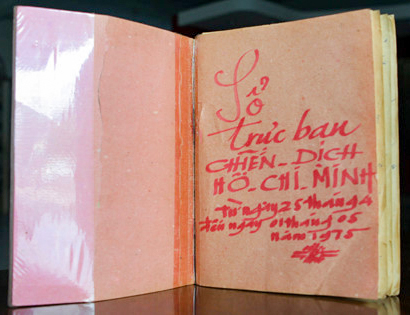 Sổ
trực ban
CHIẾN_DỊCH
HỒ_CHÍ_MINH
từ ngày 25 tháng 4
đến ngày 01 tháng 05
năm 1975